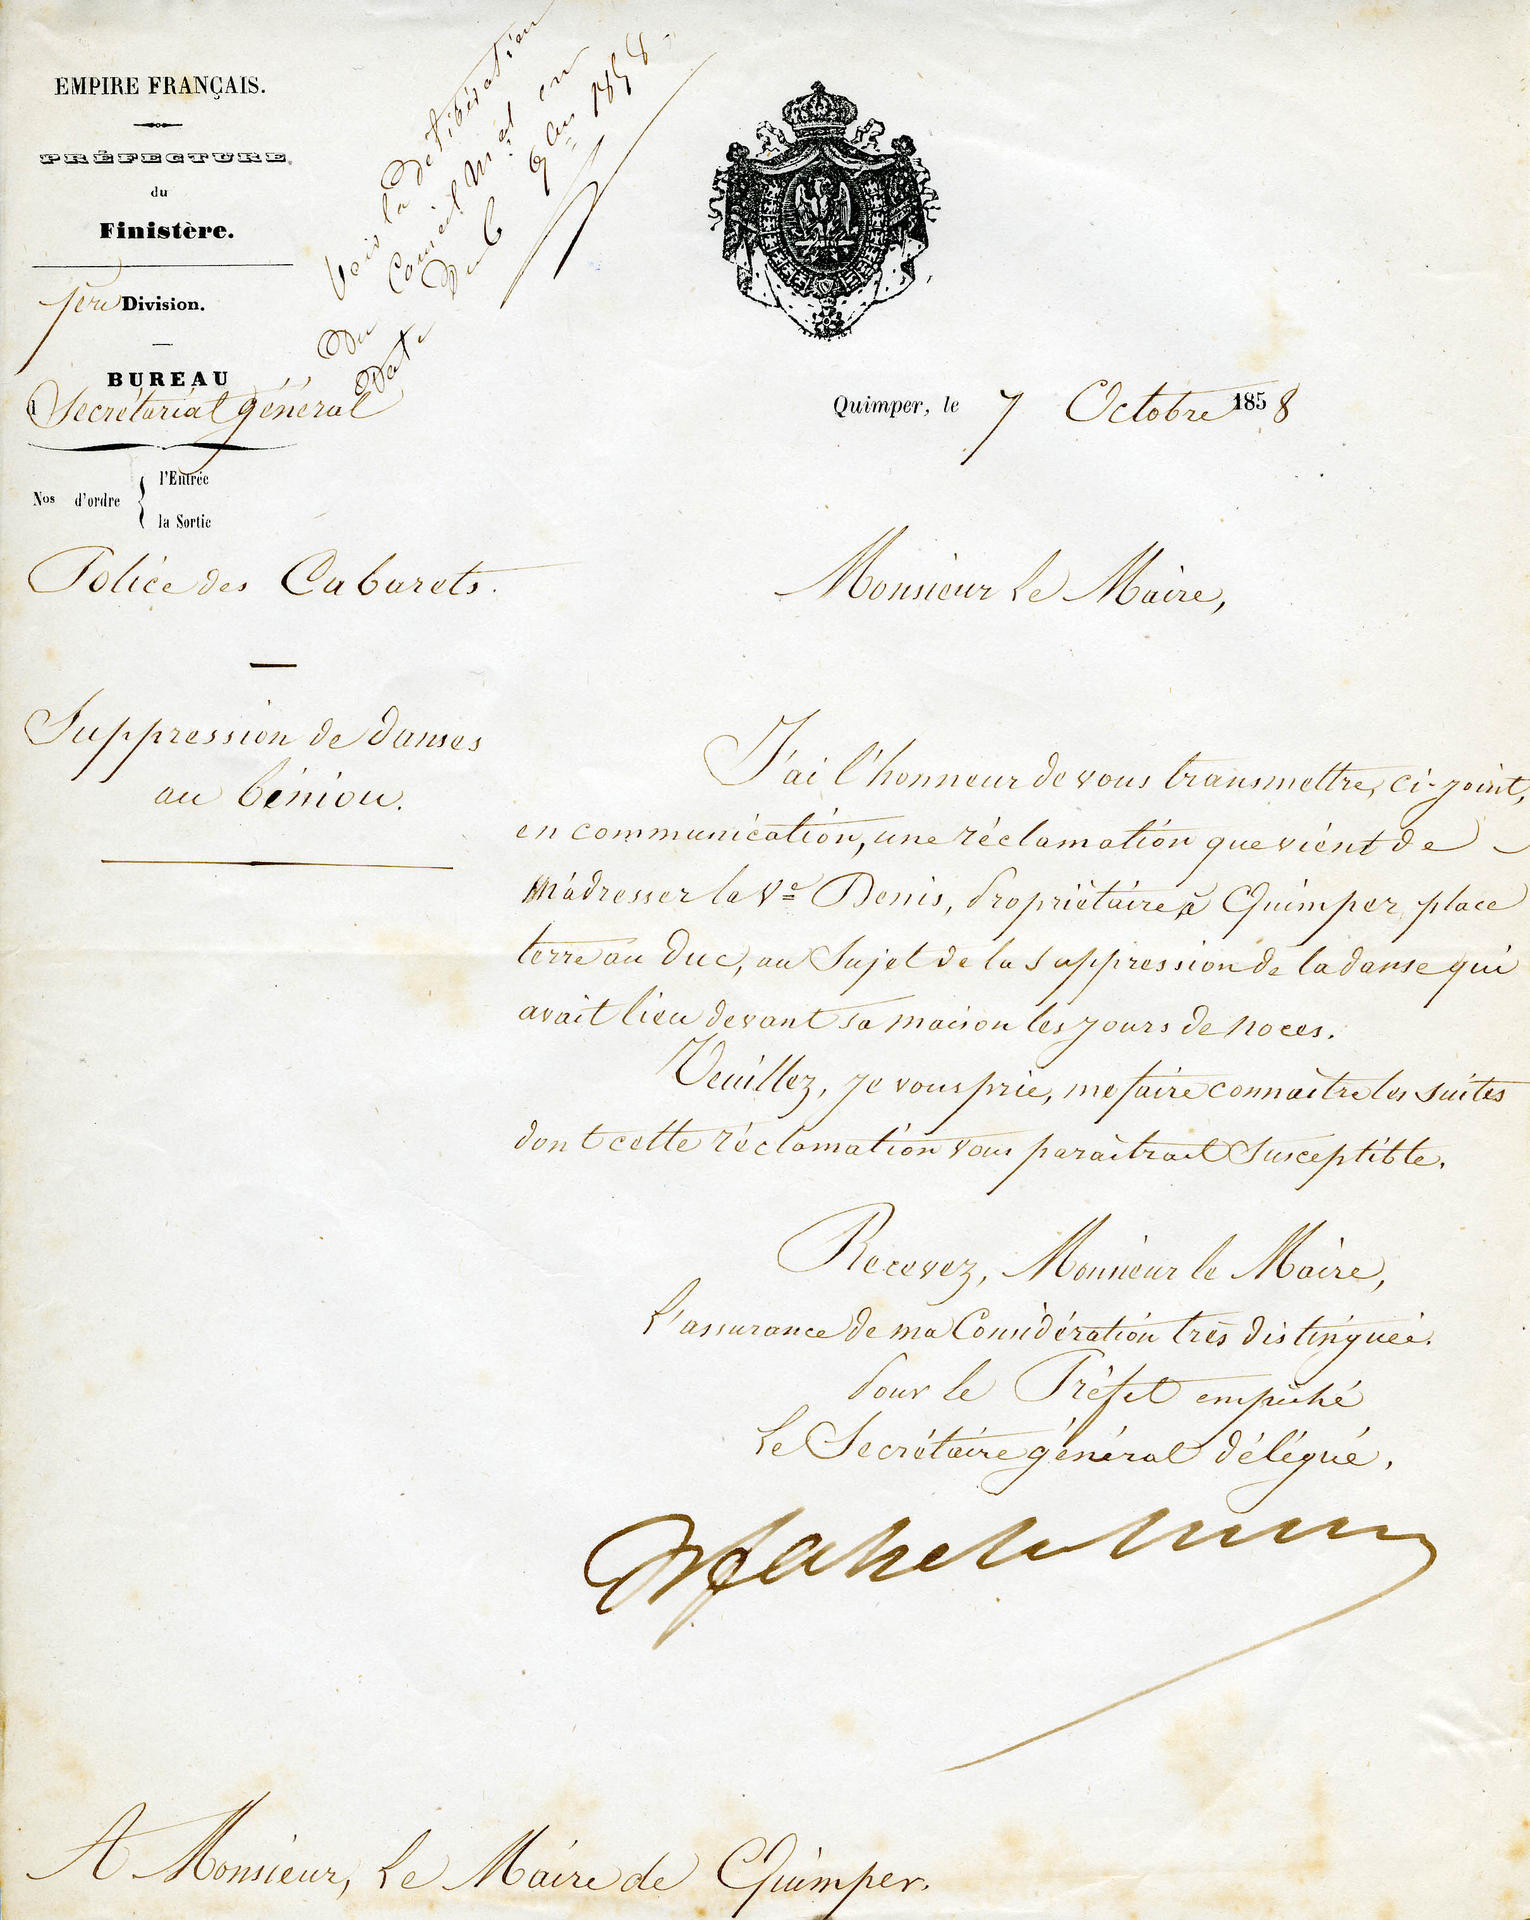 EMPIRE FRANÇAIS.
PRÉFECTURE
du
Finistère.
1ere Division.
BUREAU
Secrétariat général
Nos d'ordre
l'Entrée
la Sortie
Vois la délibération
du Conseil Mal en
Date du 6 9bre 1858
Quimper, le 7 Octobre 1858
Police des Cabarets.
Suppression de danses
au béniou.
Monsieur Le Maire,
J'ai l'honneur de vous transmettre, ci-joint,
en communication, une réclamation que vient de
m'adresser la Ve Denis, propriétaire à Quimper, place
terre au Duc, au Sujet de la Suppression de la danse qui
avait lieu devant sa maison les jours de noces.
Veuillez, je vous prie, me faire connaître les suites
dont cette réclamation vous paraîtrait Susceptible.
Recevez, Monsieur le Maire,
L'assurance de ma Considération très distinguée.
Pour le Préfet empêché
Le Secrétaire général délégué,
A Monsieur, Le Maire de Quimper.